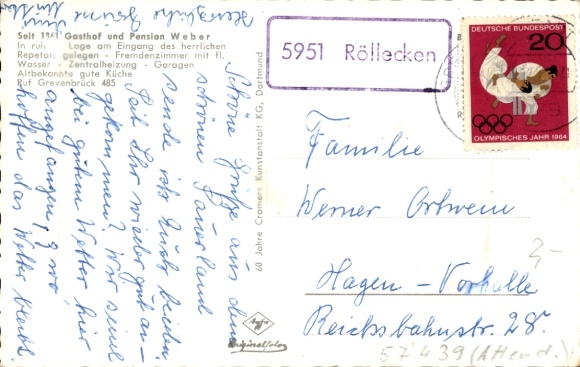 Seit 1861 Gasthof und Pension Weber
In ruh. Lage am Eingang des herrlichen
Repetal gelegen - Fremdenzimmer mit fl.
Wasser - Zentralheizung - Garagen
Altbekannte gute Küche
Ruf Grevenbrück 485
Schöne Grüße aus dem
schönen Sauerland
sende ich Euch beiden.
Seid Ihr wieder gut an-
gekommen? Wir sind
bei gutem Wetter hier
angefangen, wo
hoffen das Wetter bleibt
Herzliche Grüße
60 Jahre Cramers Kunstanstalt KG, Dortmund
Agfa
Originalfoto
5951 Röllecken
DEUTSCHE BUNDESPOST
20
OLYMPISCHES JAHR 1964
Familie
Werner Ortwein
Hagen - Vorhalle
Reichsbahnstr. 28
2,-
57439 (Attend.)